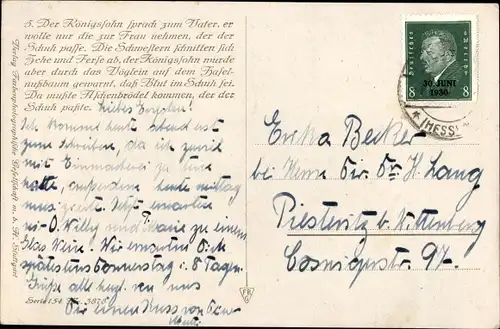 5. Der Königssohn sprach zum Vater, er
wolle nur die zur Frau nehmen, der der
Schuh passe. Die Schwestern schnitten sich
Zehe und Ferse ab, der Königssohn wurde
aber durch das Vöglein auf dem Hasel-
nußbaum gewarnt, daß Blut im Schuh sei.
Da mußte Aschenbrödel kommen, der der
Schuh paßte.
Ich komme heute abend erst
zum schreiben, da ich zuviel
mit Einmachen zu tun
hatte, außerdem heute mittag
Jetzt erwarten
wir O. Willy und zu einem
Glas Wein. Wir erwarten Dich
spätestens Donnerstag i. 8 Tagen.
Grüße alle herzl. von uns
Dir einen Kuss von
Serie 154 Nr. 5878
Deutsches Reich
30. JUNI
1930
8 8
(HESSEN)
Erika Becker
bei Herrn Dir. Dr. H. Lang
Piesteritz b. Wittenberg
Cosmigustr. 97.